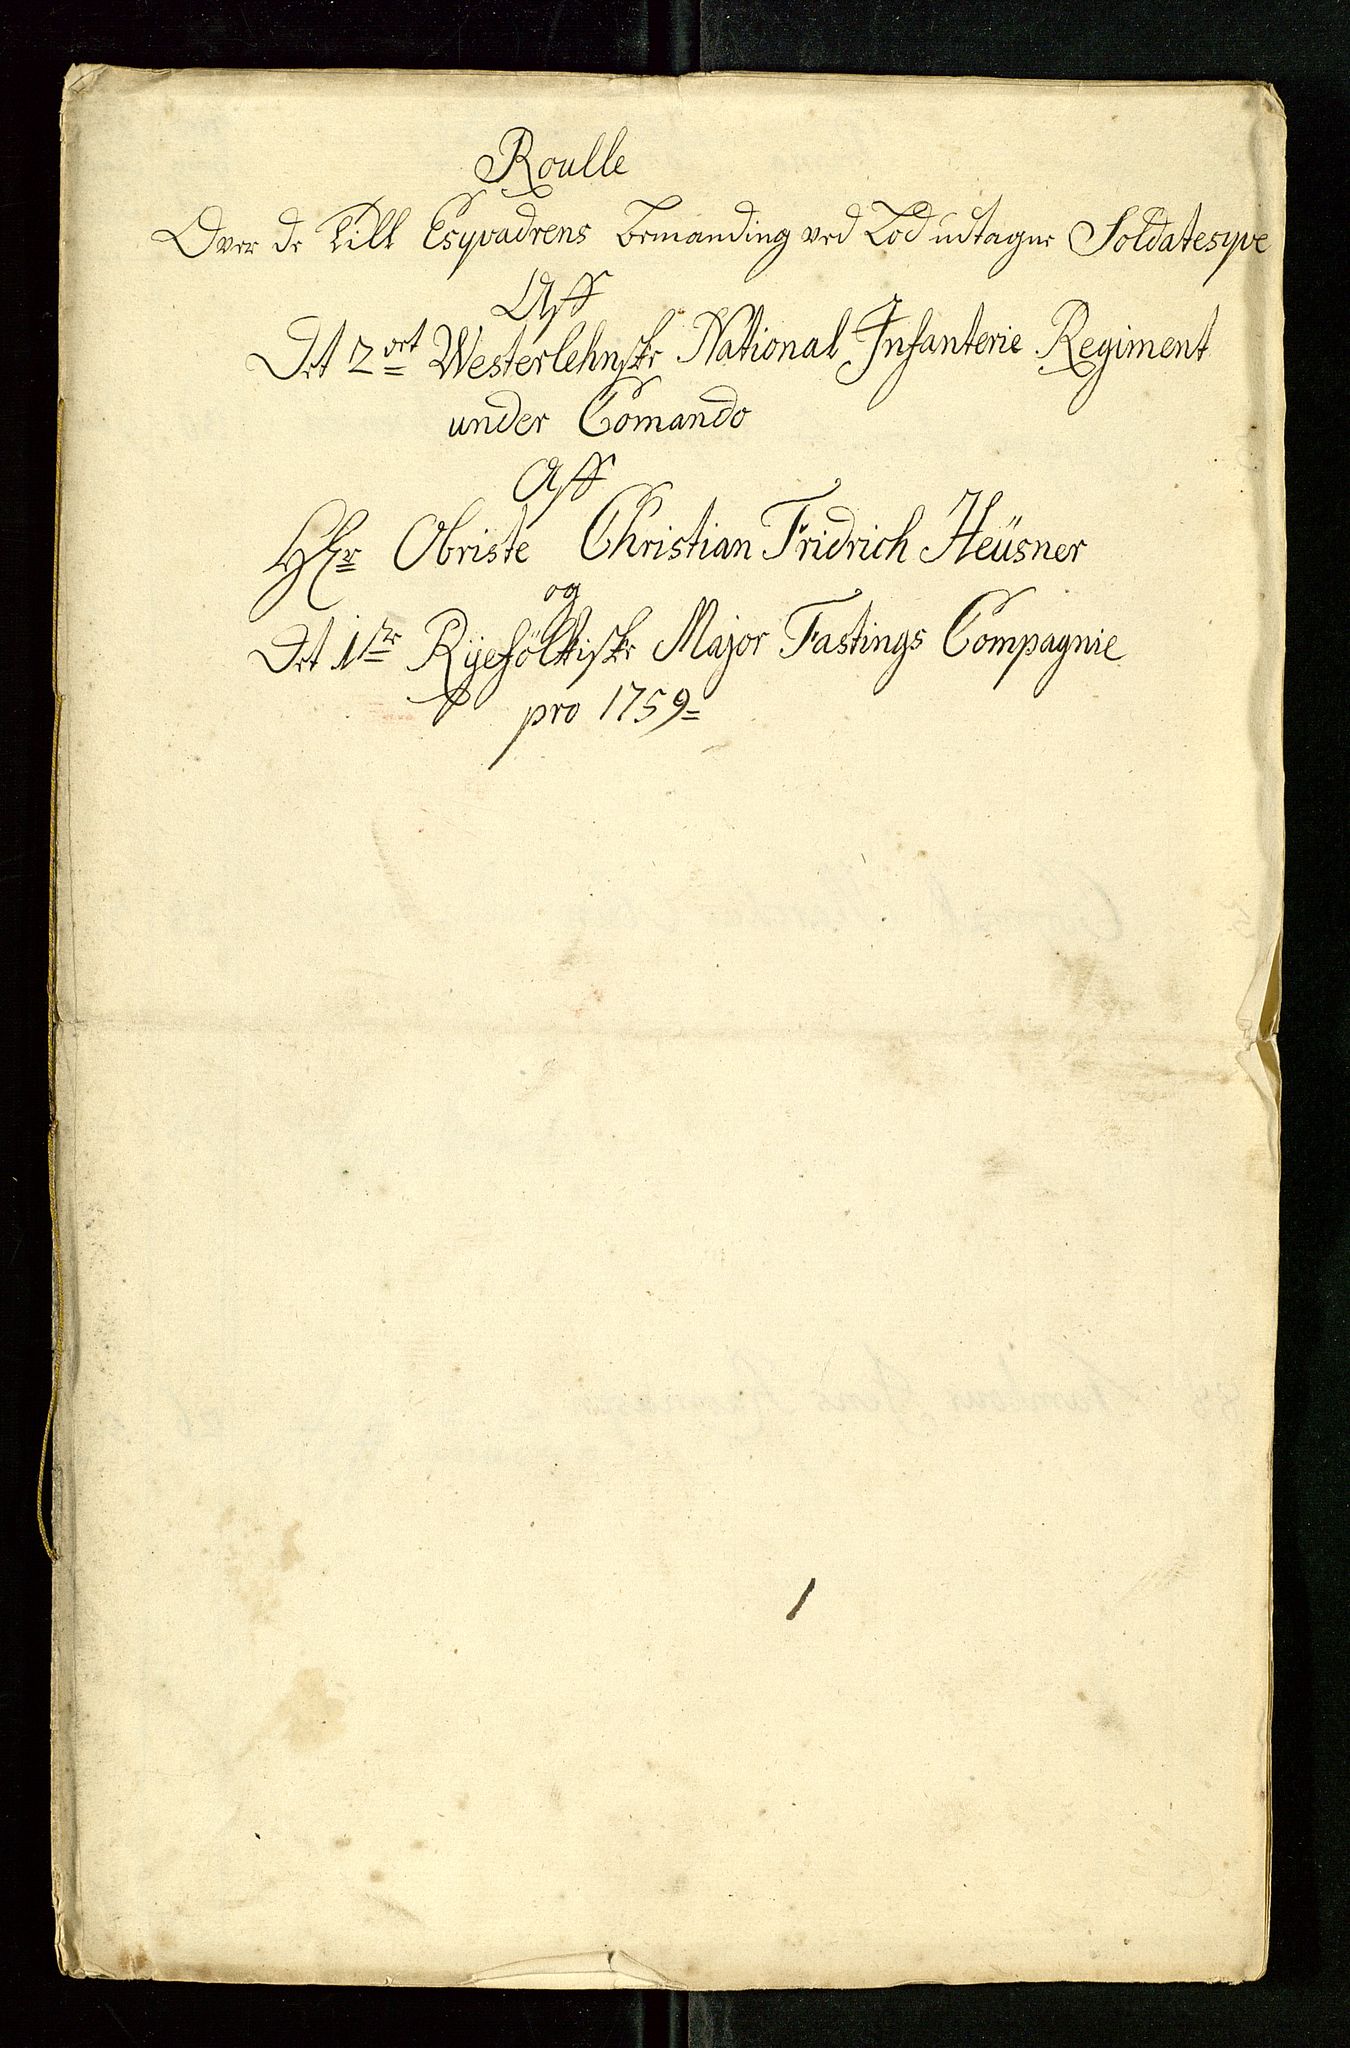 Roulle
Over de till Esqvadrens bemanding ved Lod udtagne Soldatesqve
Aff
Det 2det Westerlehnske National Infanterie Regiment
under Comando
Aff
Hr Obriste Christian Fridrich Heüsner
og
Det 1ste Ryefölkiske Major Fastings Compagnie
pro 1759=
1